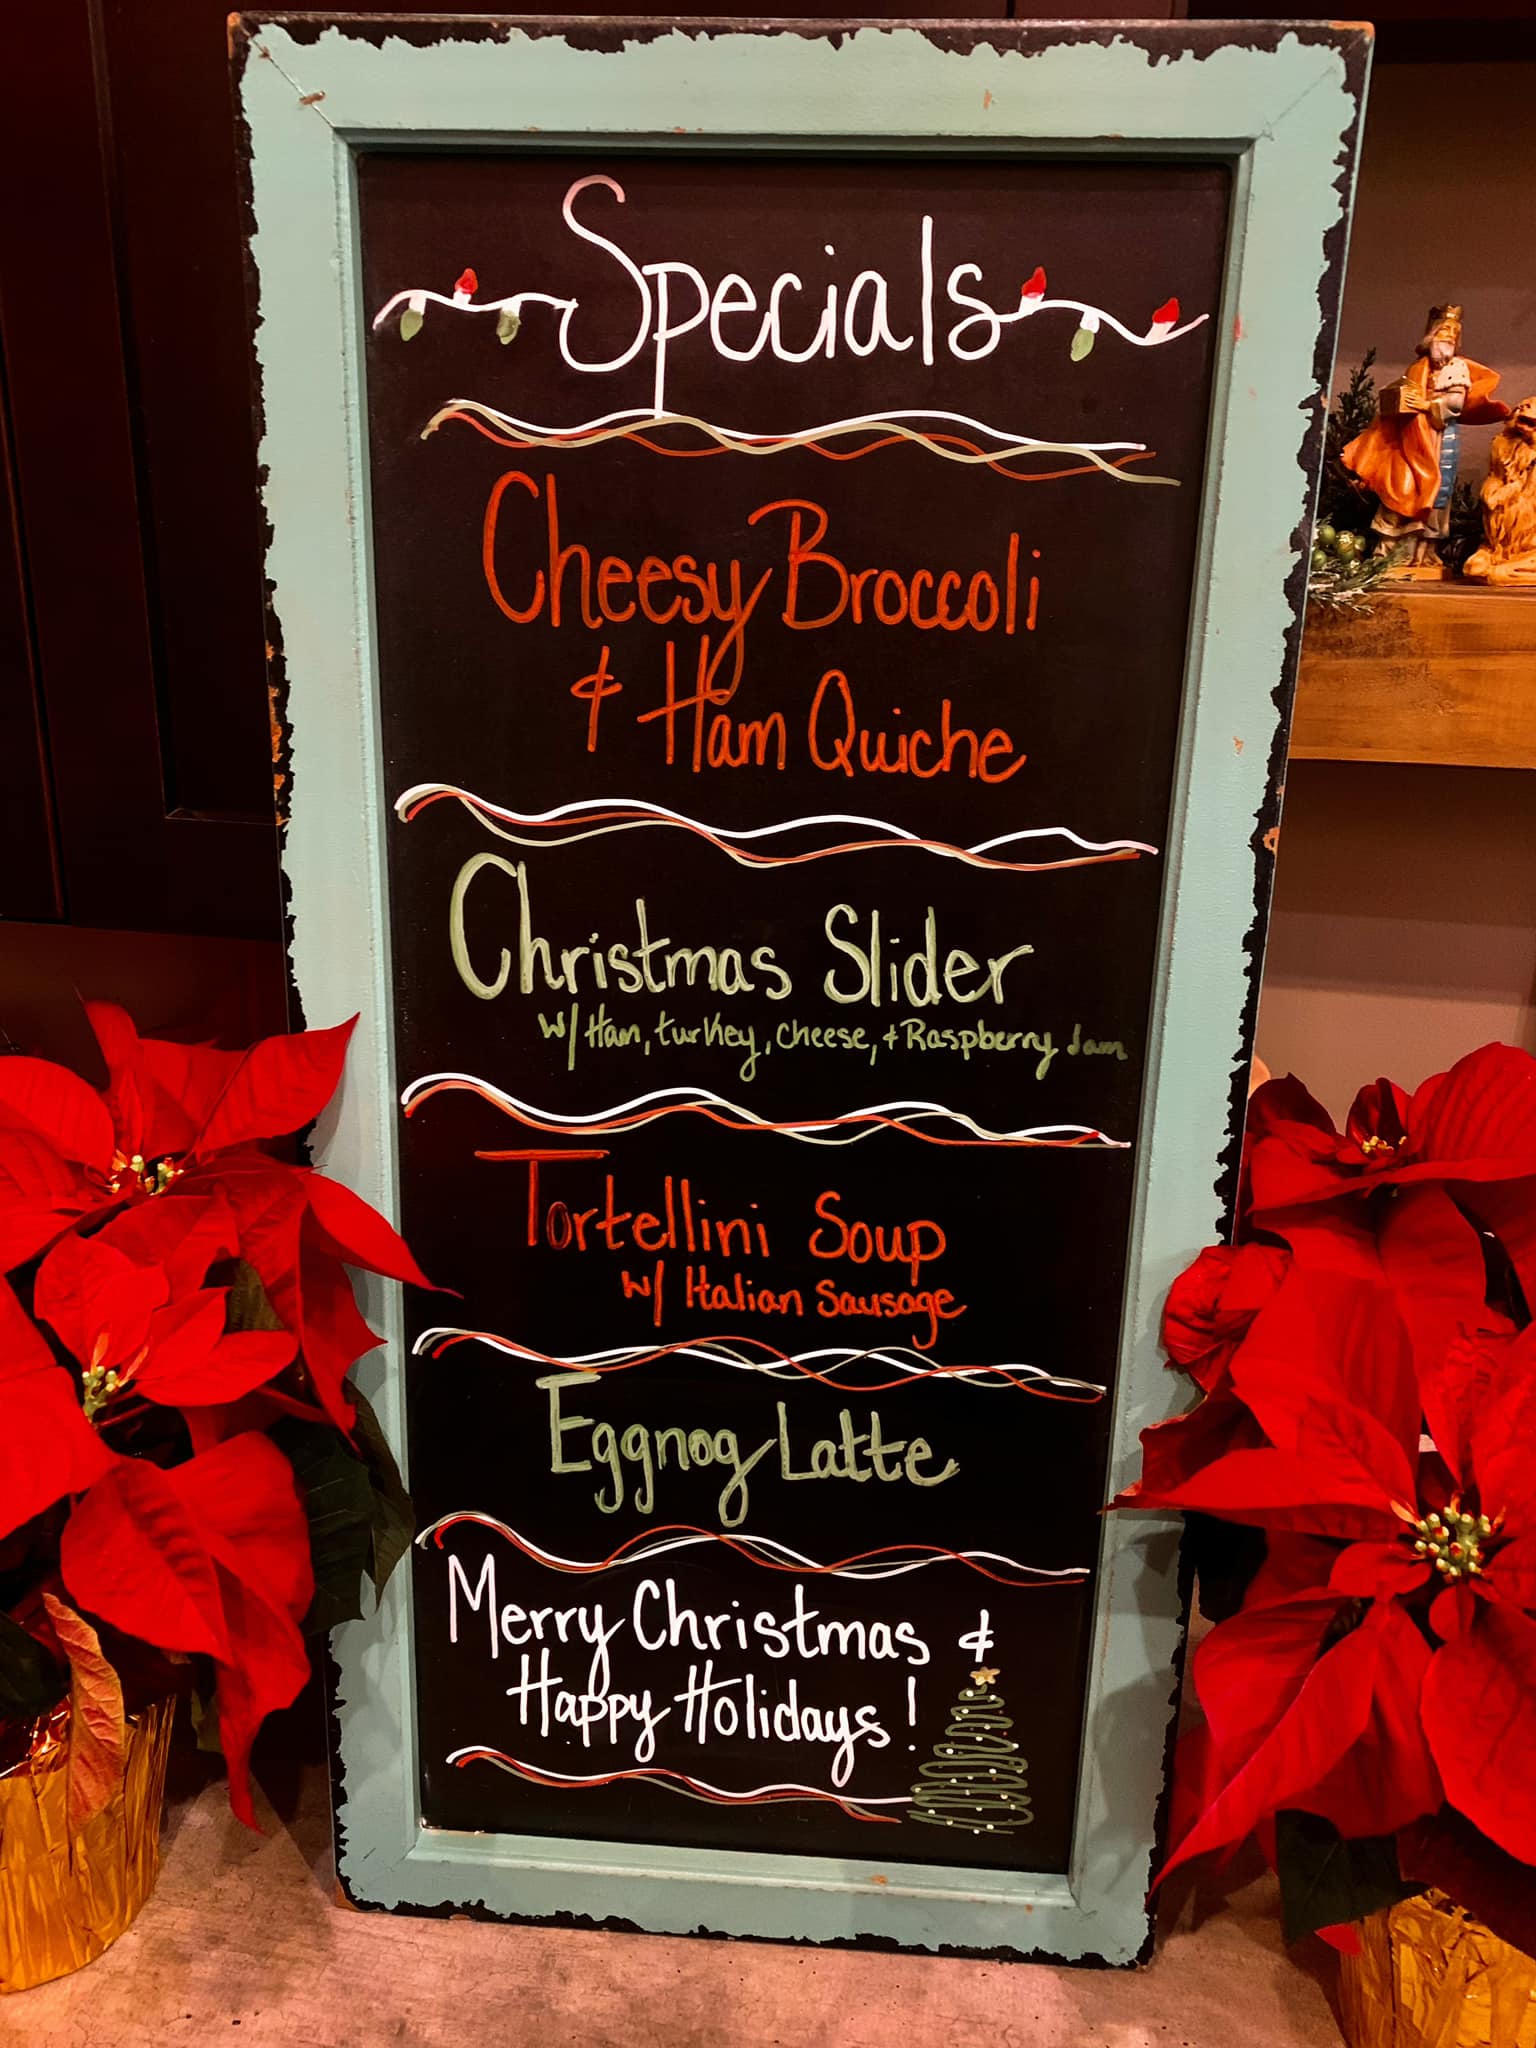 Specials
Cheesy Broccoli
& Ham Quiche
Christmas Slider
w/ Ham, turkey, cheese, & Raspberry Jam
Tortellini Soup
w/ Italian Sausage
Eggnog Latte
Merry Christmas &
Happy Holidays!